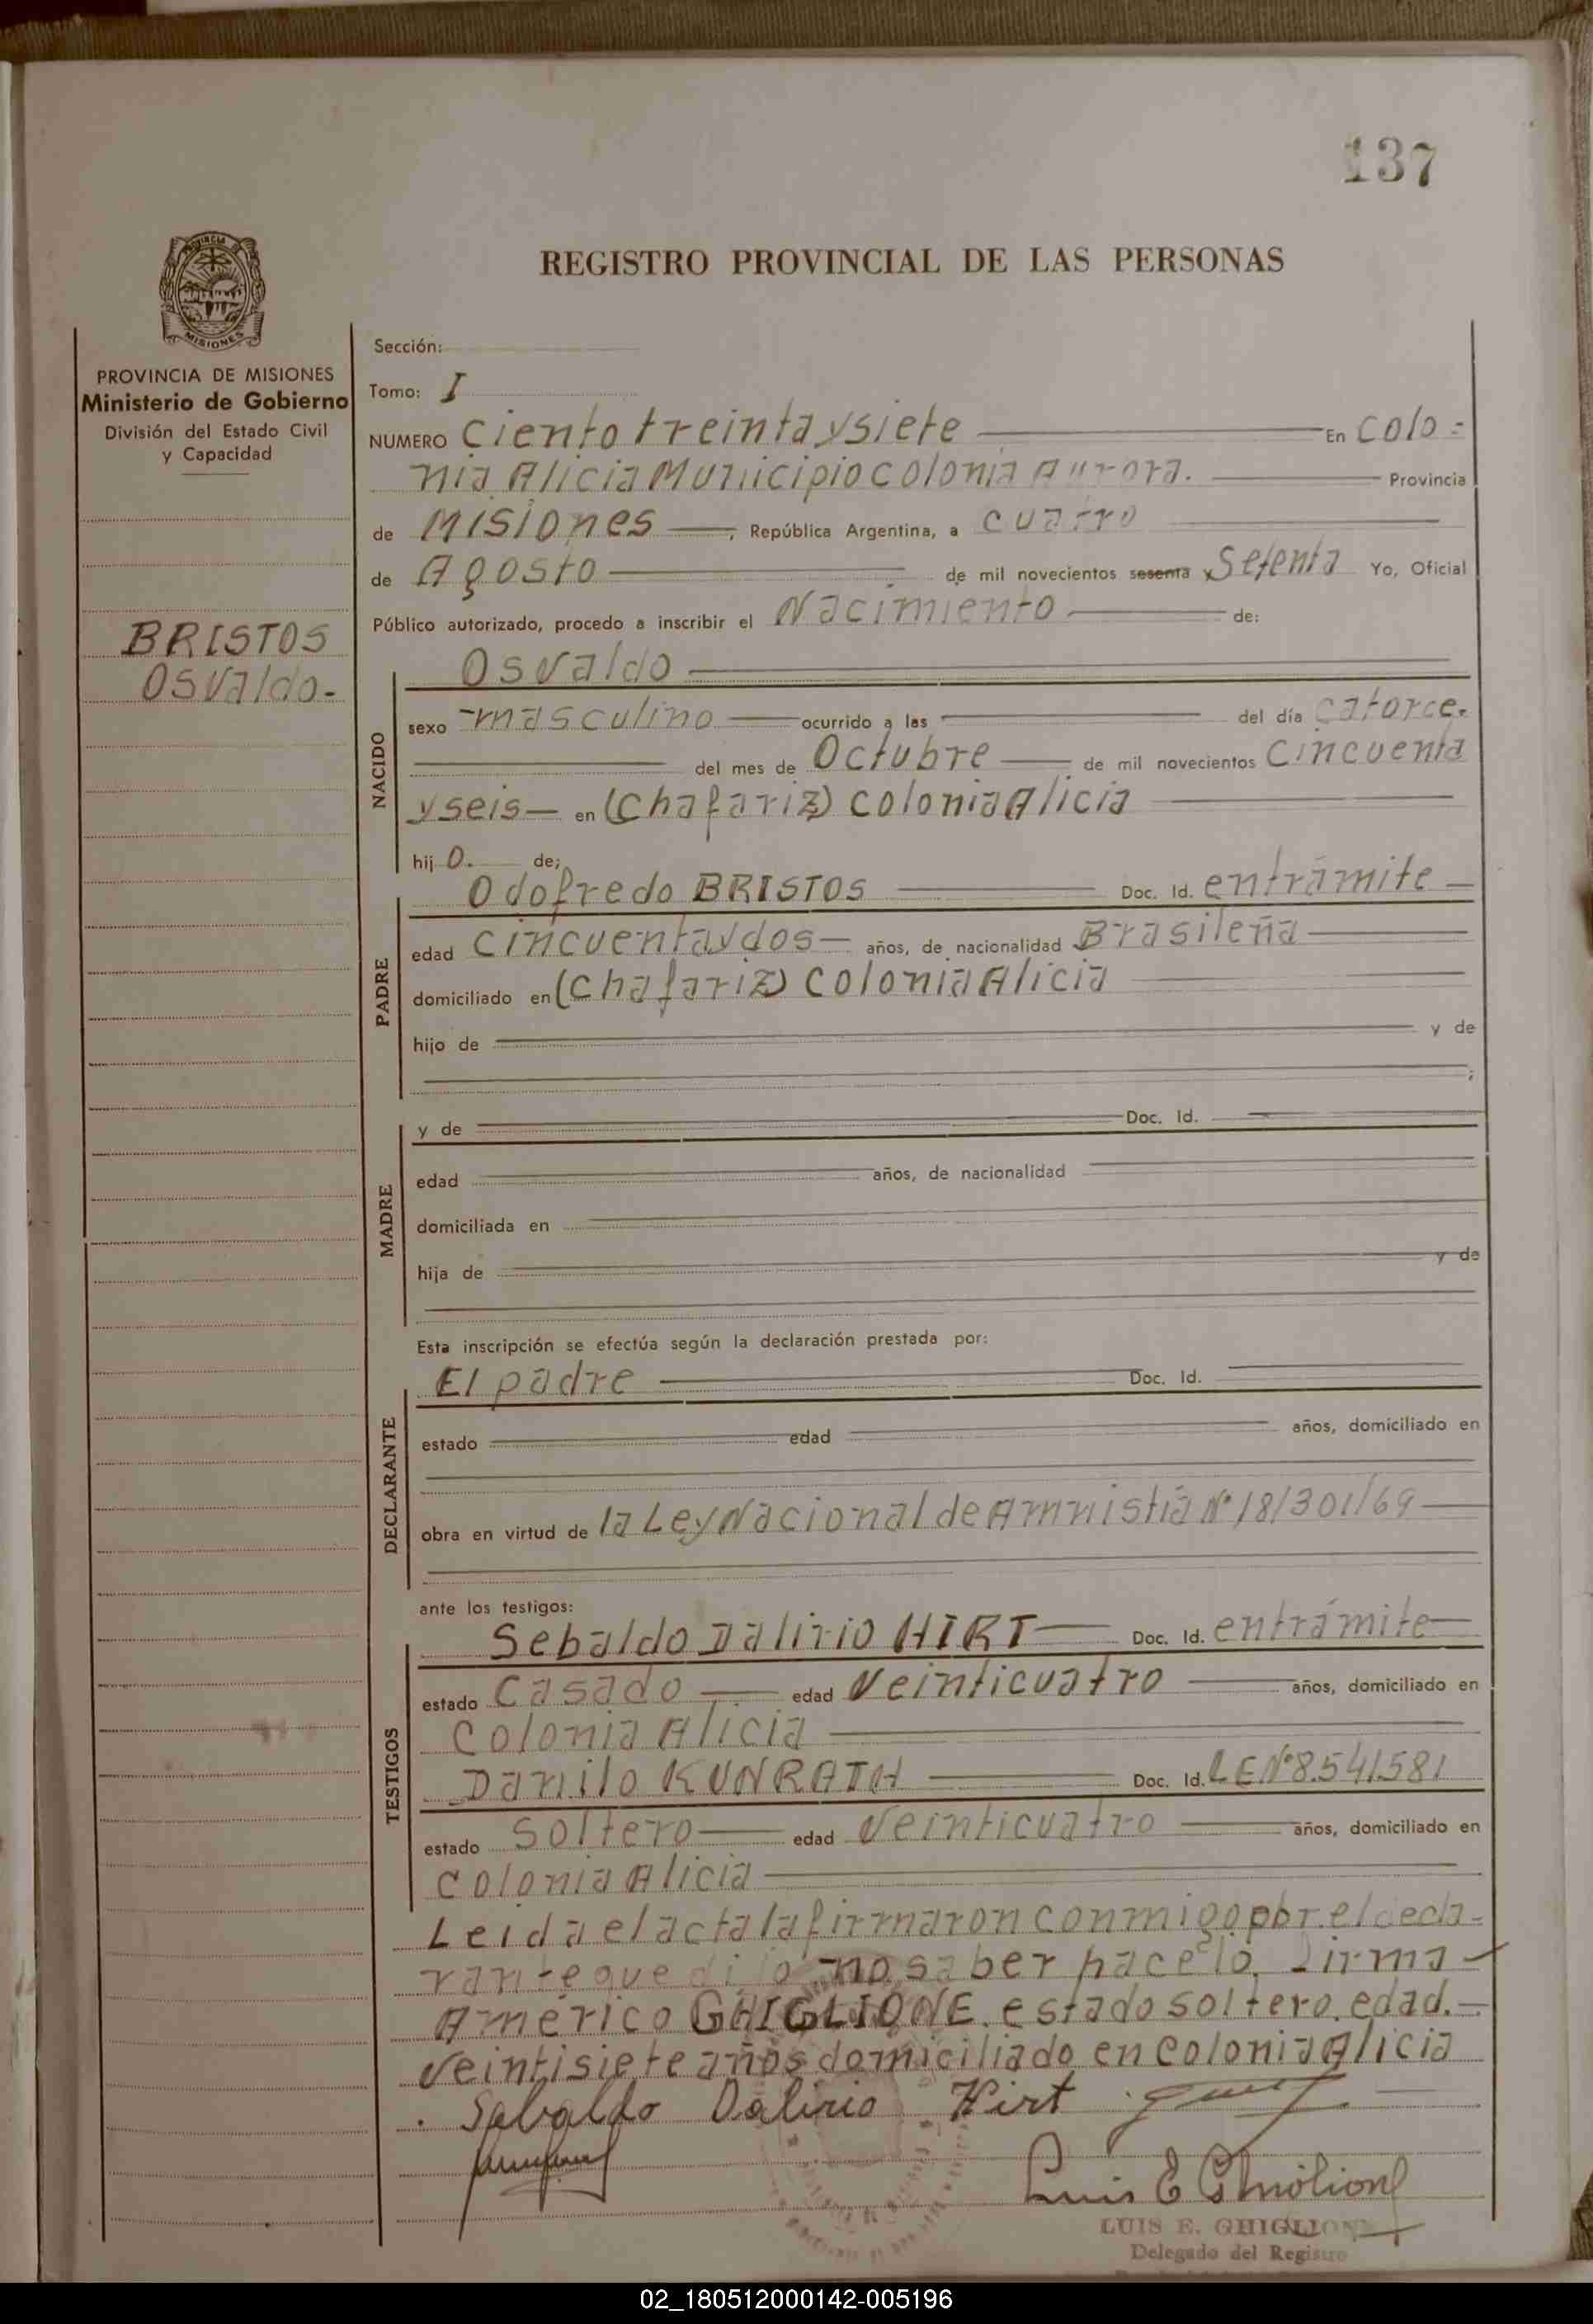 137
REGISTRO PROVINCIAL DE LAS PERSONAS
PROVINCIA DE MISIONES
Ministerio de Gobierno
División del Estado Civil
y Capacidad
BRISTOS
Osvaldo.
Sección:
Tomo: I
NUMERO Ciento treinta y siete En Colo=
nia Alicia Municipio Colonia Aurora. Provincia
de Misiones, República Argentina, a cuatro
de Agosto de mil novecientos sesenta y Setenta Yo, Oficial
Público autorizado, procedo a inscribir el Nacimiento de:
Osvaldo
NACIDO
sexo masculino ocurrido a las del día catorce.
del mes de Octubre de mil novecientos Cincuenta
y seis en (Chafariz) Colonia Alicia
hij o. de;
Odofredo BRISTOS Doc. Id. entrámite
PADRE
edad Cincuenta y dos años, de nacionalidad Brasileña
domiciliado en (Chafariz) Colonia Alicia
hijo de y de
;
MADRE
y de Doc. Id.
edad años, de nacionalidad
domiciliada en
hija de y de
Esta inscripción se efectúa según la declaración prestada por:
El padre Doc. Id.
DECLARANTE
estado edad años, domiciliado en
obra en virtud de la Ley Nacional de Amnistiá Nº 18/301/69
ante los testigos:
Sebaldo Dalirio HIRT Doc. Id. entrámite
TESTIGOS
estado Casado edad Veinticuatro años, domiciliado en
Colonia Alicia
Danilo KUNRATH Doc. Id. LE Nº 8.541.581
estado Soltero edad Veinticuatro años, domiciliado en
Colonia Alicia
Leida el acta la firmaron conmigo por el decla-
rante que dijo no saber hacelo, firma
Américo GHIGLIONE. estado soltero. edad.
Veintisiete años domiciliado en Colonia Alicia
Sebaldo Dalirio Hirt
Luis E Ghiglione
LUIS E. GHIGLIONE
Delegado del Registro
02_180512000142-005196